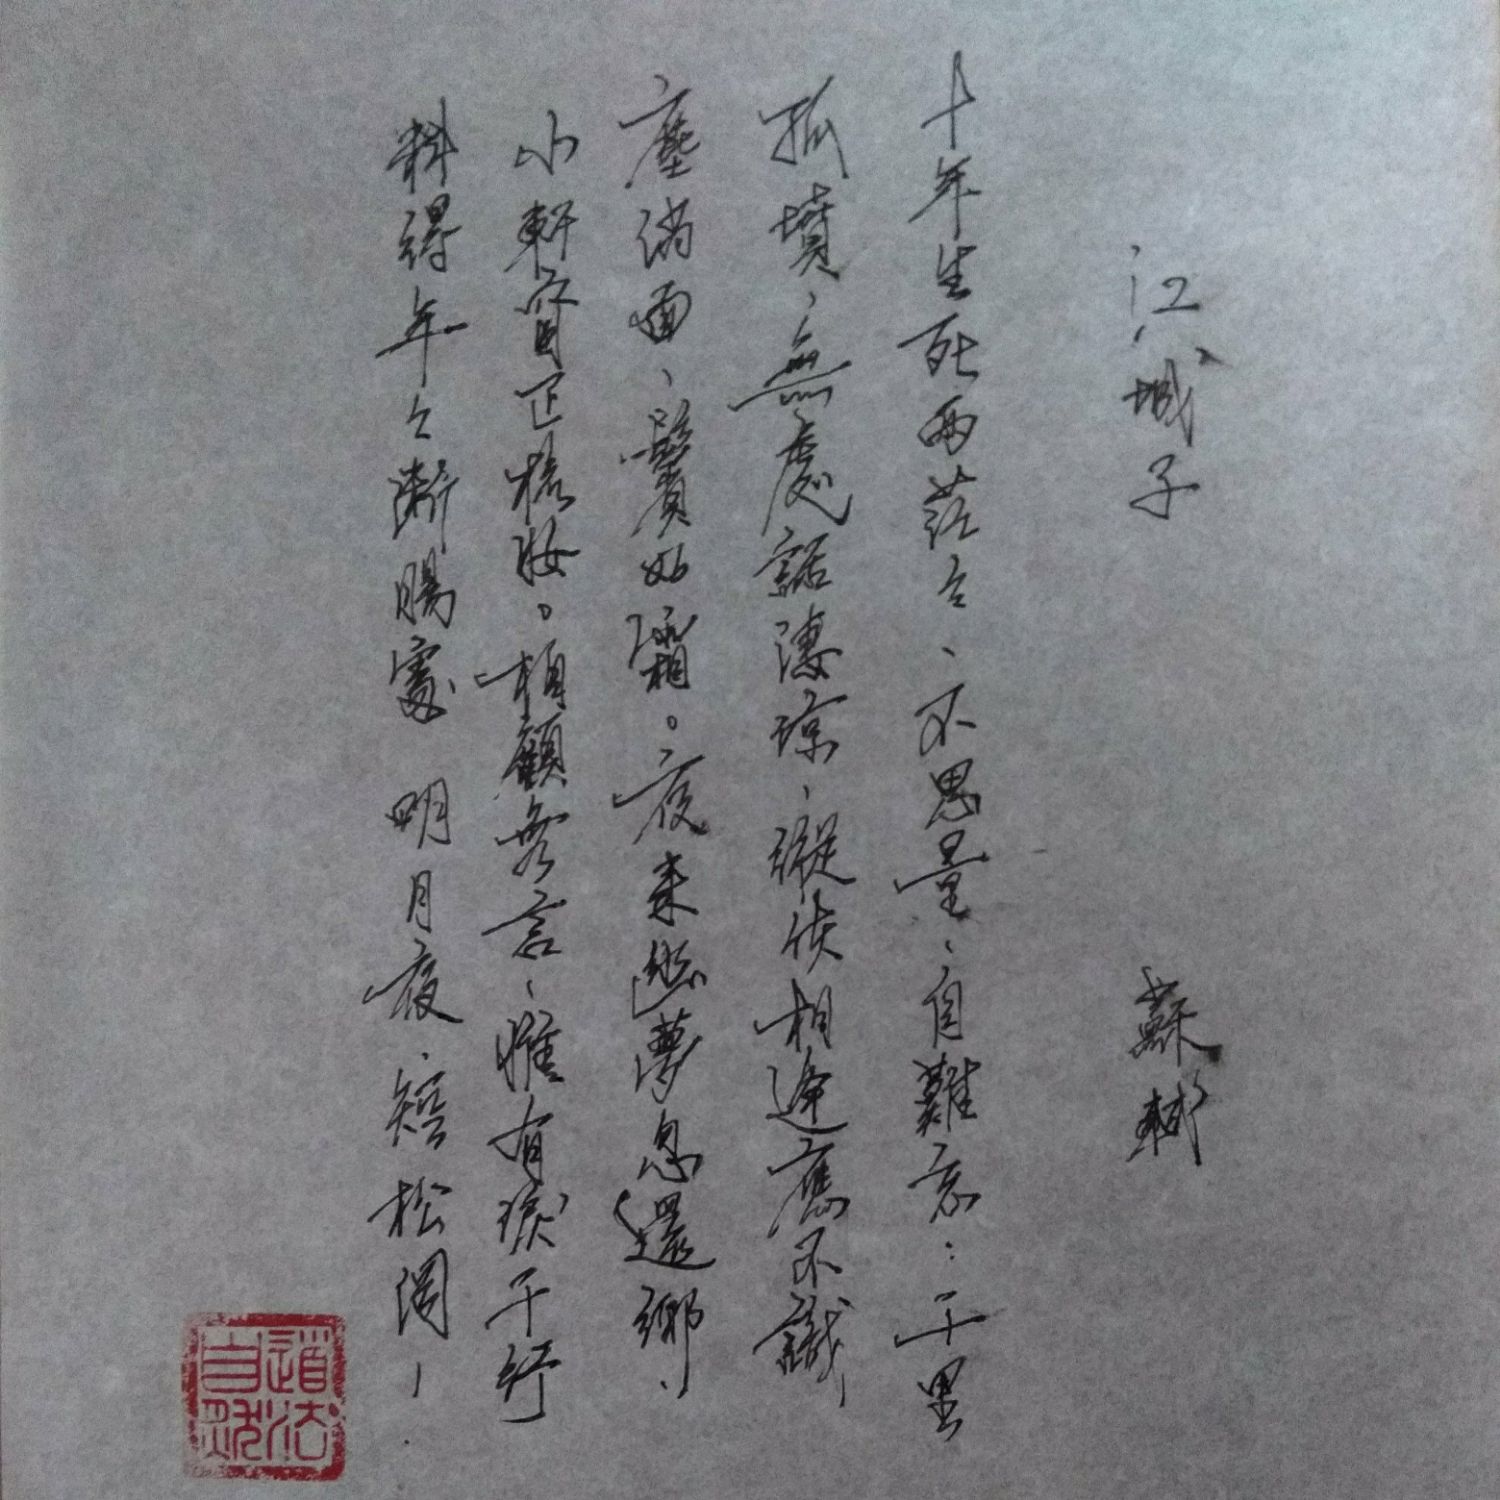 江城子 蘇軾
十年生死两茫々、不思量、自難忘:千里
孤墳、無處話淒涼、縱使相逢應不識
塵满面、鬢如霜。夜来幽夢忽還鄉、
小軒窗正梳妝。相顧無言、惟有淚千行
料得年々断腸處 明月夜、短松岡、
道法自然